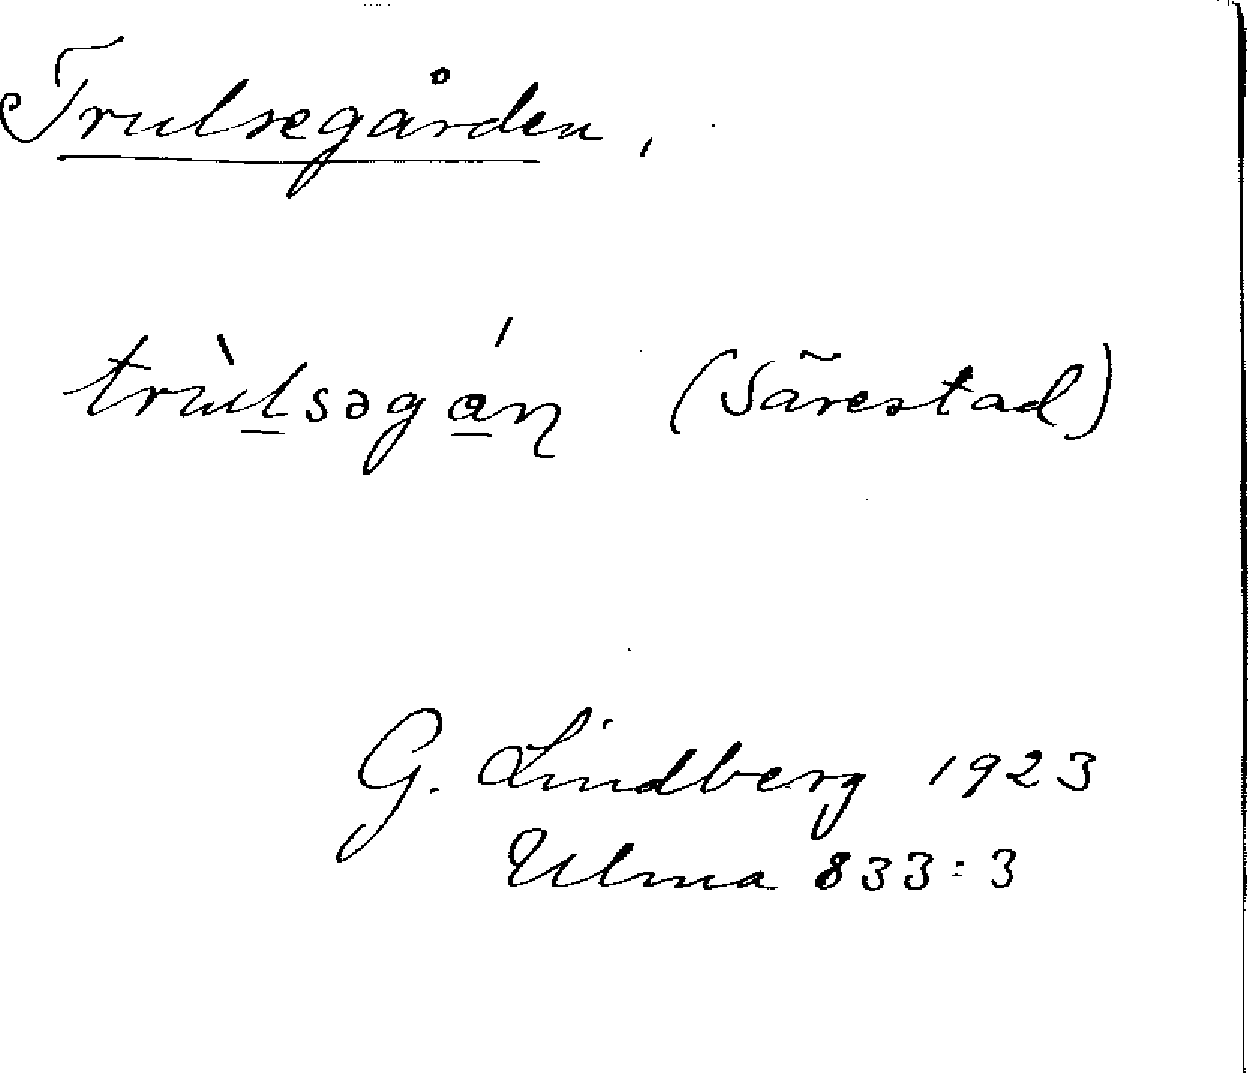 Trulsegården,
trùl̲səgá̲ɳ (Särestad)
G. Lindberg 1923
Ulma 833:3